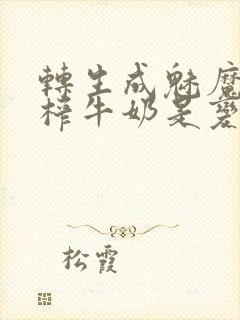 轉生成魅魔
榨牛奶是變
松霞